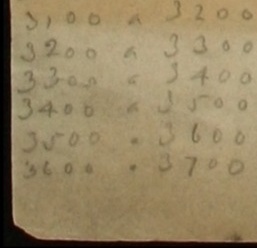 3100 a 3200
3200 a 3300
3300 a 3400
3400 a 3500
3500 . 3600
3600 . 3700